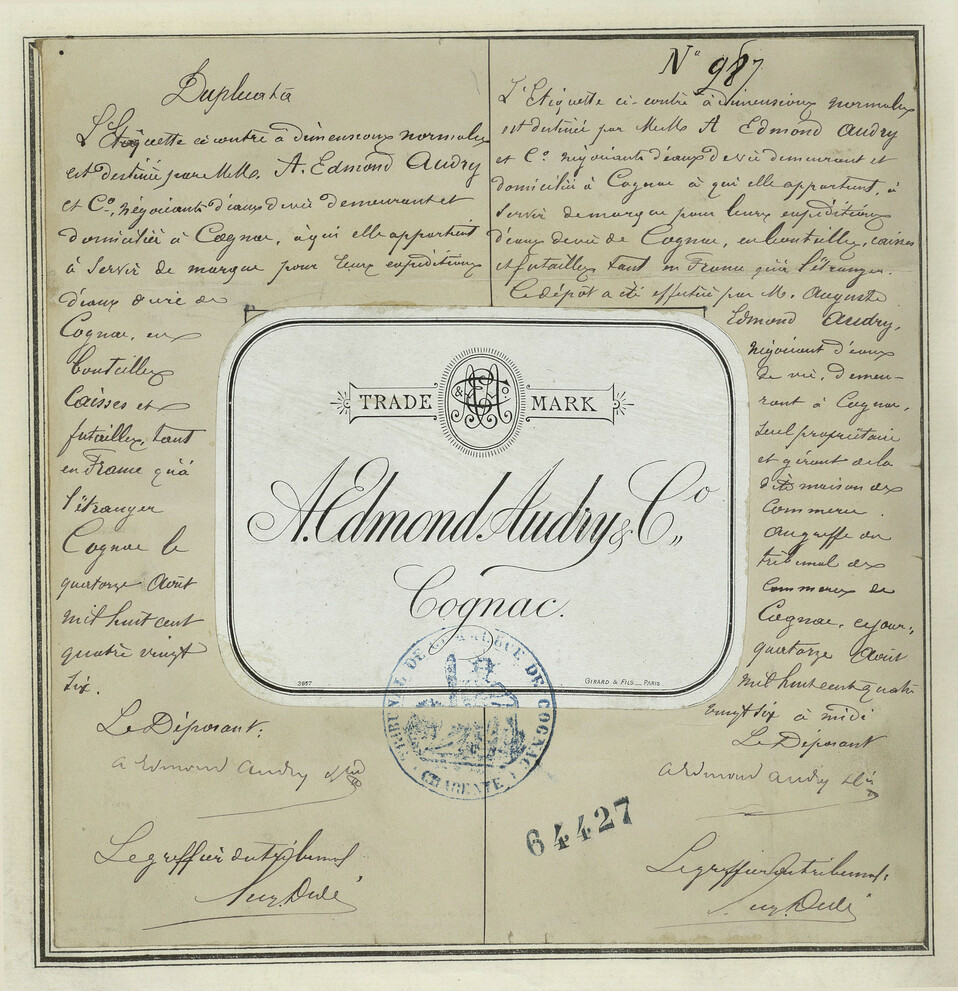 Duplicata
L'Etiquette ci contre à dimensions normales
est destinée par M.M. A. Edmond Audry
et Co, négociants d'eaux de vie demeurant et
domiciliés à Cognac, à qui elle appartient
à servir de marque pour leurs expéditions
d'eaux de vie de
Cognac, en
bouteilles
Caisses et
futailles, tant
en France qu'à
l'étranger
Cognac le
quatorze Août
mil huit cent
quatre vingt
six.
Le Déposant.
A Edmond Audry & Co
Le greffier du tribunal
No 987
L'Etiquette ci-contre à dimensions normales
est destinée par M.M. A Edmond Audry
et Co. négociants d'eaux de vie demeurant et
domiciliés à Cognac à qui elle appartient, à
servir de marque pour leurs expéditions
d'eaux de vie de Cognac, en bouteilles, caisses
et futailles tant en France qu'à l'étranger.
Le dépôt a été effectué par M. Auguste
Edmond Audry,
négociant d'eaux
de vie, demeu-
rant à Cognac,
seul propriétaire
et gérant de la
dite maison de
Commerce.
Au greffe du
tribunal de
Commerce de
Cognac, ce jour,
quatorze Août
mil huit cent quatre
vingt six à midi
Le Déposant
A Edmond Audry & Co
Le greffier du tribunal.
TRADE MARK
A. Edmond Audry & Co,,
Cognac.
3657
GIRARD & FILS _ PARIS
TRIBUNAL DE COMMERCE DE COGNAC
CHARENTE
64427